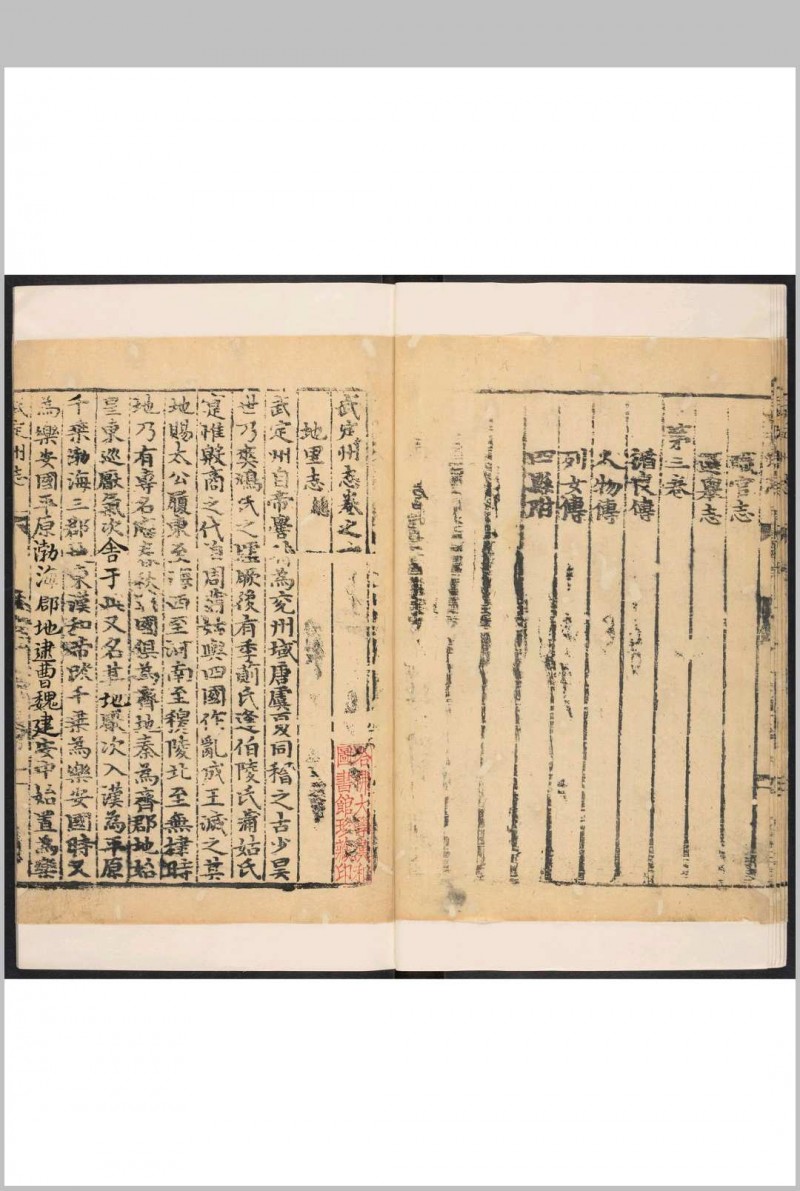 職官志
選舉志
第三卷
循良傳
人物傳
列女傳
四縣附
武定州志卷之一
地里志 總
武定州自帝嚳為兗州域唐虞夏同稽之古少昊
世乃爽鳩氏之墟厥後有季萴氏逄伯陵氏蒲姑氏
寔惟殷商之代逮周蒲姑與四國作亂成王滅之其
地賜太公履東至海西至河南至穆陵北至無棣時
地乃有專名應春秋戰國俱為齊地秦為齊郡地始
皇東巡厭氣次舍于此又名其地厭次入漢為平原
千乗渤海三郡地東漢和帝改千乗為樂安國時又
為樂安國平原渤海郡地逮曹魏建安中始置為樂
武定州志
圖書館珍藏印